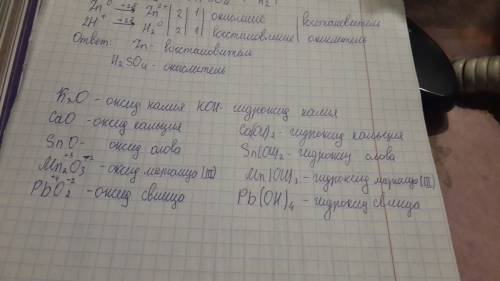 Zn⁰ -2ē→ Zn²⁺ | 2 | 1 | окисление | восстановитель
2H⁺ +2ē→ H₂⁰ | 2 | 1 | восстановление | окислитель
Ответ: Zn - восстановитель
H₂SO₄ - окислитель
K₂O - оксид калия KOH - гидроксид калия
CaO - оксид кальция Ca(OH)₂ - гидроксид кальция
SnO - оксид олова Sn(OH)₂ - гидроксид олова
Mn₂⁺³O₃⁻² - оксид марганца (III) Mn(OH)₃ - гидроксид марганца (III)
Pb⁺⁴O₂⁻² - оксид свинца Pb(OH)₄ - гидроксид свинца